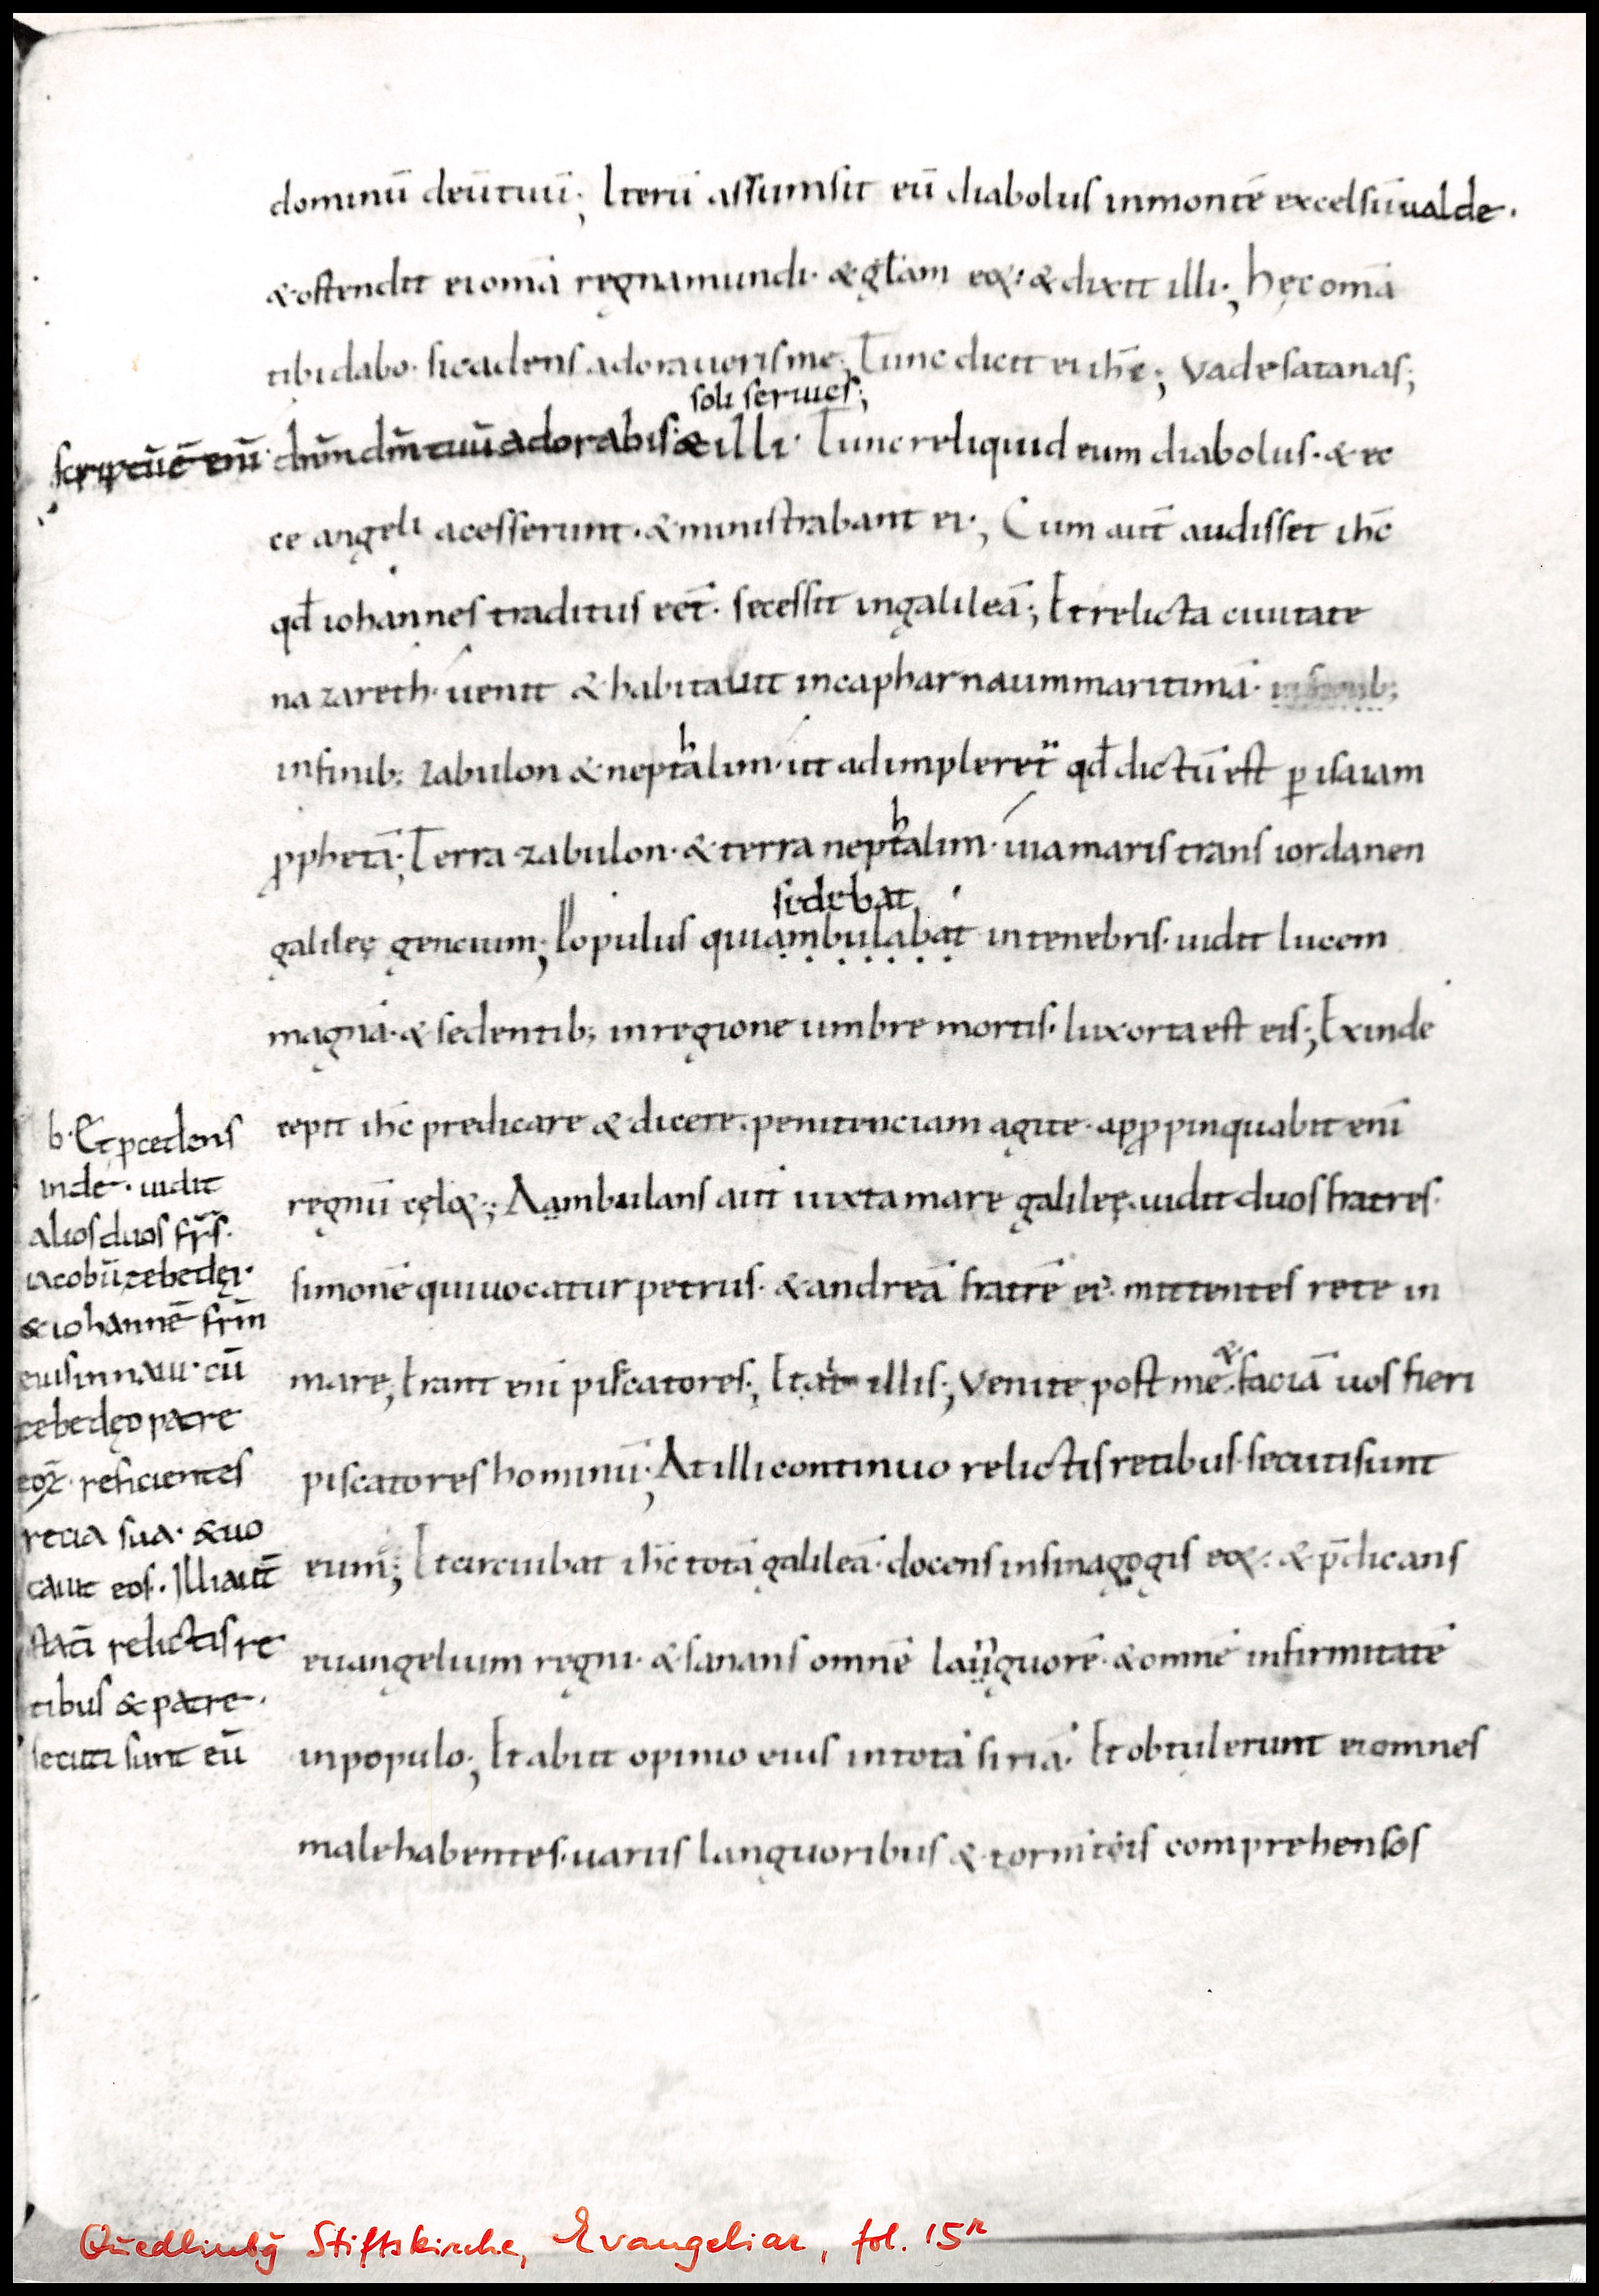 dominū deū tuū; Iterū assumsit eū diabolus in montē excelsū ualde·
& ostendit ei om̄a regna mundi· & gl̄am eoꝝ: & dixit illi·; hęc om̄a
tibi dabo· si cadens adoraueris me; Tunc dicit ei ih̄c; Vade satanas;
soli seruies;
scriptū ē eni̅· dn̄m dm̄ tuū adorabis· & illi· Tunc reliquid eum diabolus· & ec
ce angeli acesserunt· & ministrabant ei·; Cum aut̄ audisset ih̄c
qd̄ iohannes traditus eēt· secessit in galileā; Et relicta ciuitate
nazareth· uenit & habitauit in capharnaum maritimā·
in finib; zabulon & nepthalim· ut adimpleret̄ qd̄ dictū est ꝑ isaiam
ꝓphetā; Terra zabulon· & terra nepthalim· uia maris trans iordanen
galileę gencium; Populus qui ambulabat in tenebris· uidit lucem
sedebat
magnā· & sedentib; in regione umbre mortis· lux orta est eis; Exinde
cepit ih̄c predicare & dicere· penitenciam agite· apꝓpinquabit enī
regnū cęloꝝ; Aambulans aut̄ iuxta mare galileę· uidit duos fratres·
simonē qui uocatur petrus· & andreā fratrē ei᾿· mittentes rete in
mare; Erant enī piscatores; Et ait illis; Venite post me· & faciā uos fieri
piscatores hominū; At illi continuo relictis retibus· secuti sunt
eum; Et circuibat ih̄c totā galileā· docens in sinagogis eoꝝ: & p̄dicans
euangelium regni· & sanans omnē languorē· & omnē infirmitatē
in populo; Et abiit opinio eius in totā siriā· Et obtulerunt ei omnes
male habentes· uariis languoribus & tormītis comprehensos
b· Et ꝓcedens
inde· uidit
alios duos fr̄s·
iacobū zebedęi·
& iohannē fr̄m
eius in naui· cū
zebedęo patre
eoꝝ· reficientes
recia sua· & uo
cauit eos· Illi aut̄
statī relictis re
tibus & patre·
secuti sunt eū
Quedlinbg Stiftskirche, Evangeliar, fol. 15r